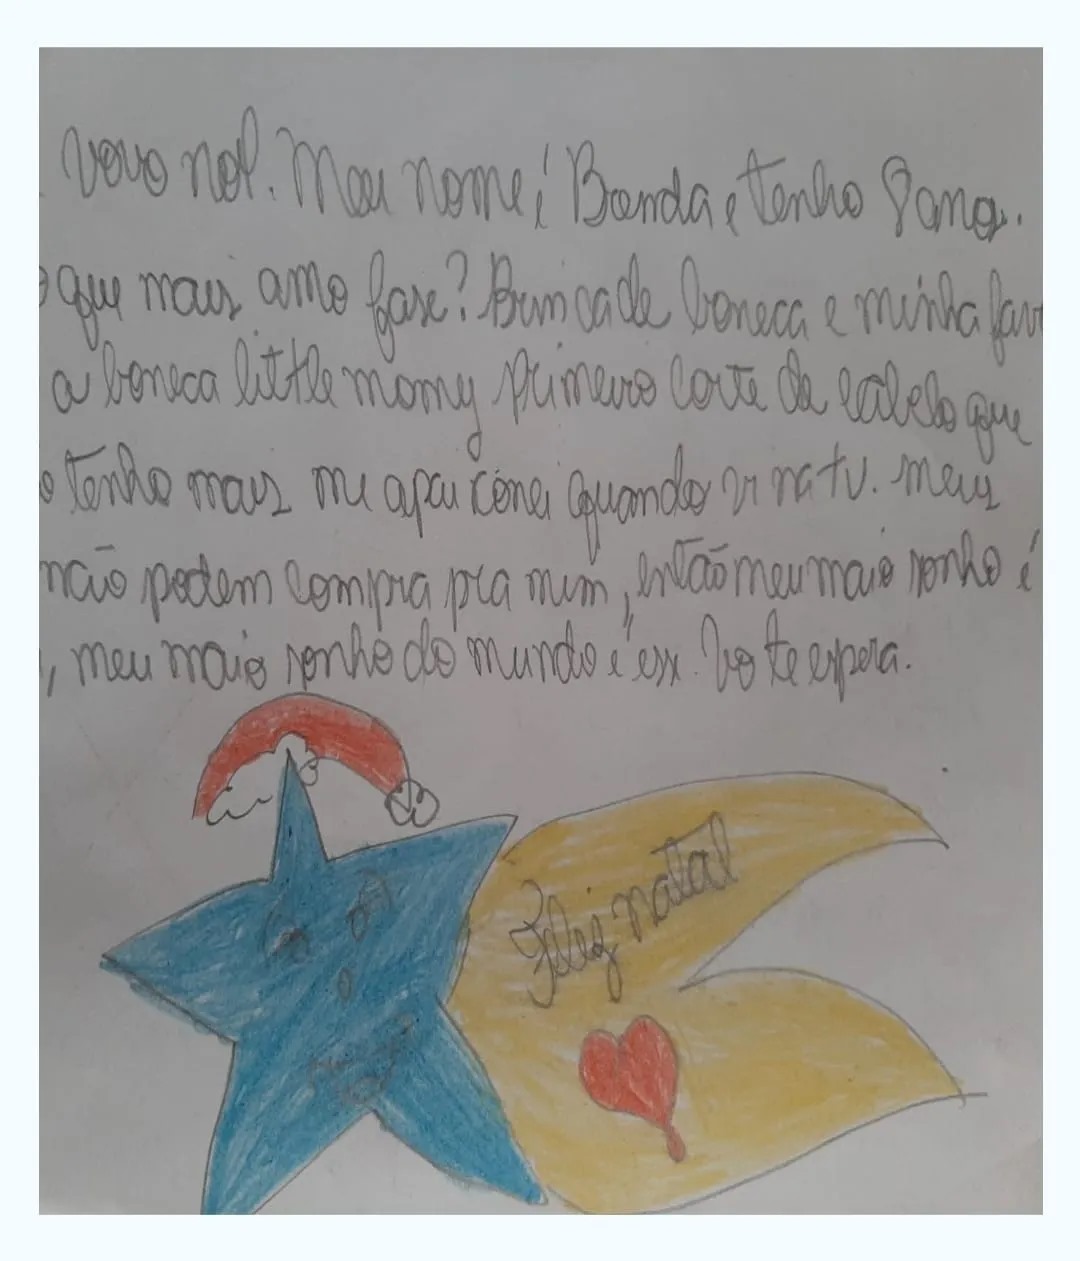 vovo nol. Meu nome é Banda e tenho 8 anos.
o que mais amo fase? Brinca de boneca e minha fav
a boneca little momy primeiro corte de cabelo que
o tenho mais me apaixonei quando vi na tv. meus
não podem compra pra mim, então meu maio sonho é
, meu maio sonho do mundo é ess. Vo te espera.
Feliz natal